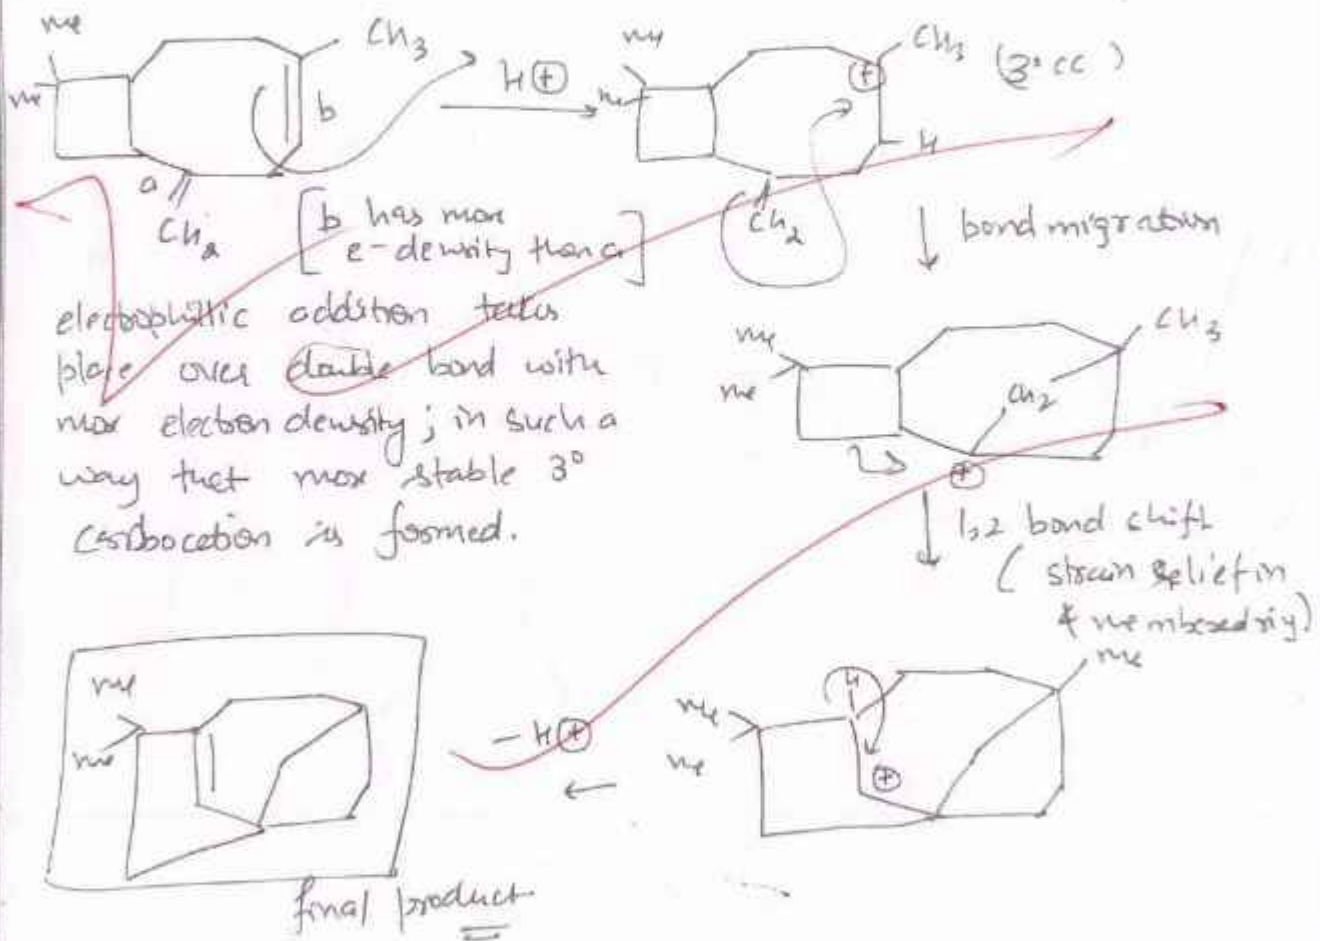 me
me
CH3
H⊕
b
a
CH2
[b has more
e-density than a]
me
me
CH3 (3° CC)
⊕
H
CH2
bond migration
electrophillic addition takes
place over double bond with
mor electron density; in such a
way that more stable 3°
carbocation is formed.
me
me
CH3
CH2
⊕
1,2 bond shift
( strain relief in
4 membered ring)
me
me
me
H
⊕
- H⊕
me
me
final product